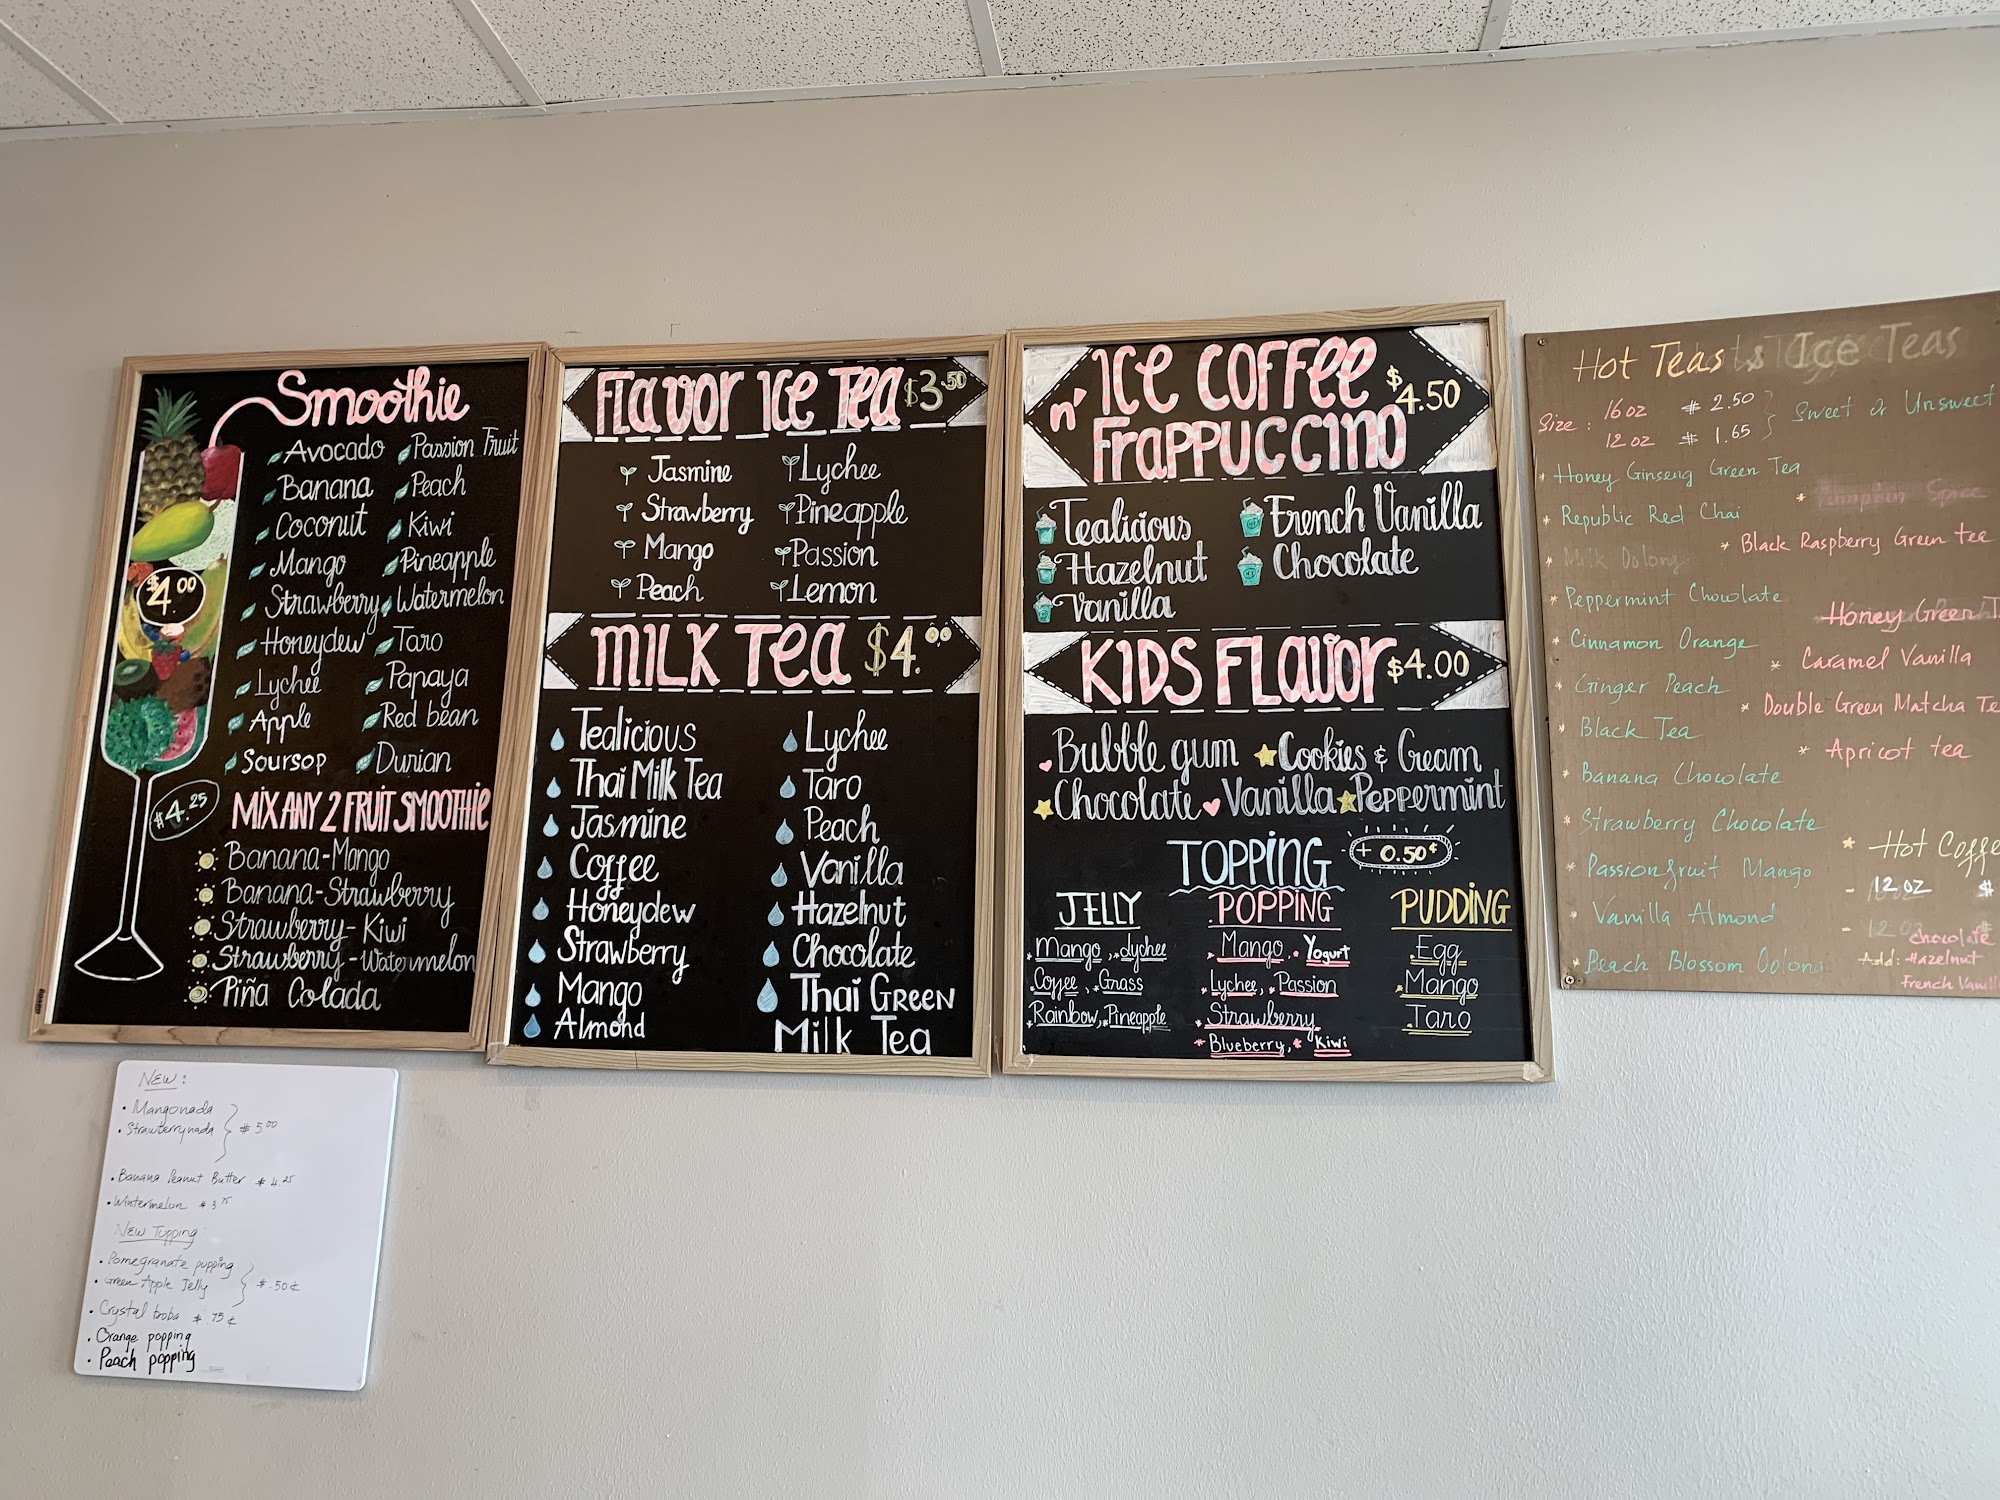 Smoothie
Avocado
Banana
Coconut
Mango
Strawberry
Honeydew
Lychee
Apple
Soursop
Passion Fruit
Peach
Kiwi
Pineapple
Watermelon
Taro
Papaya
Red bean
Durian
$4.00
$4.25
MIX ANY 2 FRUIT SMOOTHIE
Banana-Mango
Banana-Strawberry
Strawberry-Kiwi
Strawberry-Watermelon
Piña Colada
FLavor Ice Tea $3.50
Jasmine
Strawberry
Mango
Peach
Lychee
Pineapple
Passion
Lemon
MILK Tea $4.00
Tealicious
Thai Milk Tea
Jasmine
Coffee
Honeydew
Strawberry
Mango
Almond
Lychee
Taro
Peach
Vanilla
Hazelnut
Chocolate
Thai GREEN
Milk Tea
ICE COFFEE
n' FRAPPUCCINO
$4.50
Tealicious
Hazelnut
Vanilla
French Vanilla
Chocolate
KIDS FLavor $4.00
Bubble gum Cookies & Cream
Chocolate Vanilla Peppermint
TOPPING + 0.50¢
JELLY
Mango, Lychee
Coffee, Grass
Rainbow, Pineapple
POPPING
Mango, Yogurt
Lychee, Passion
Strawberry
Blueberry, Kiwi
PUDDING
Egg
Mango
Taro
Hot Teas & Ice Teas
Size: 16oz $ 2.50
12oz $ 1.65
Sweet or Unsweet
* Honey Ginseng Green Tea
* Republic Red Chai
* Milk Oolong
* Peppermint Chocolate
* Cinnamon Orange
* Ginger Peach
* Black Tea
* Banana Chocolate
* Strawberry Chocolate
* Passionfruit Mango
* Vanilla Almond
* Peach Blossom Oolong
* Pumpkin Spice
* Black Raspberry Green tea
Honey Green
* Caramel Vanilla
* Double Green Matcha Te
* Apricot tea
* Hot Coffe
- 12oz $
- 12oz $
Add: Chocolate
Hazelnut
French Vanill
NEW:
• Mangonada
• Strawberrynada
$ 5.00
• Banana Peanut Butter $ 4.25
• Wintermelon $ 3.75
New Topping
• Pomegranate popping
• Green Apple Jelly
$ .50¢
• Crystal boba $ 75¢
• Orange popping
• Peach popping